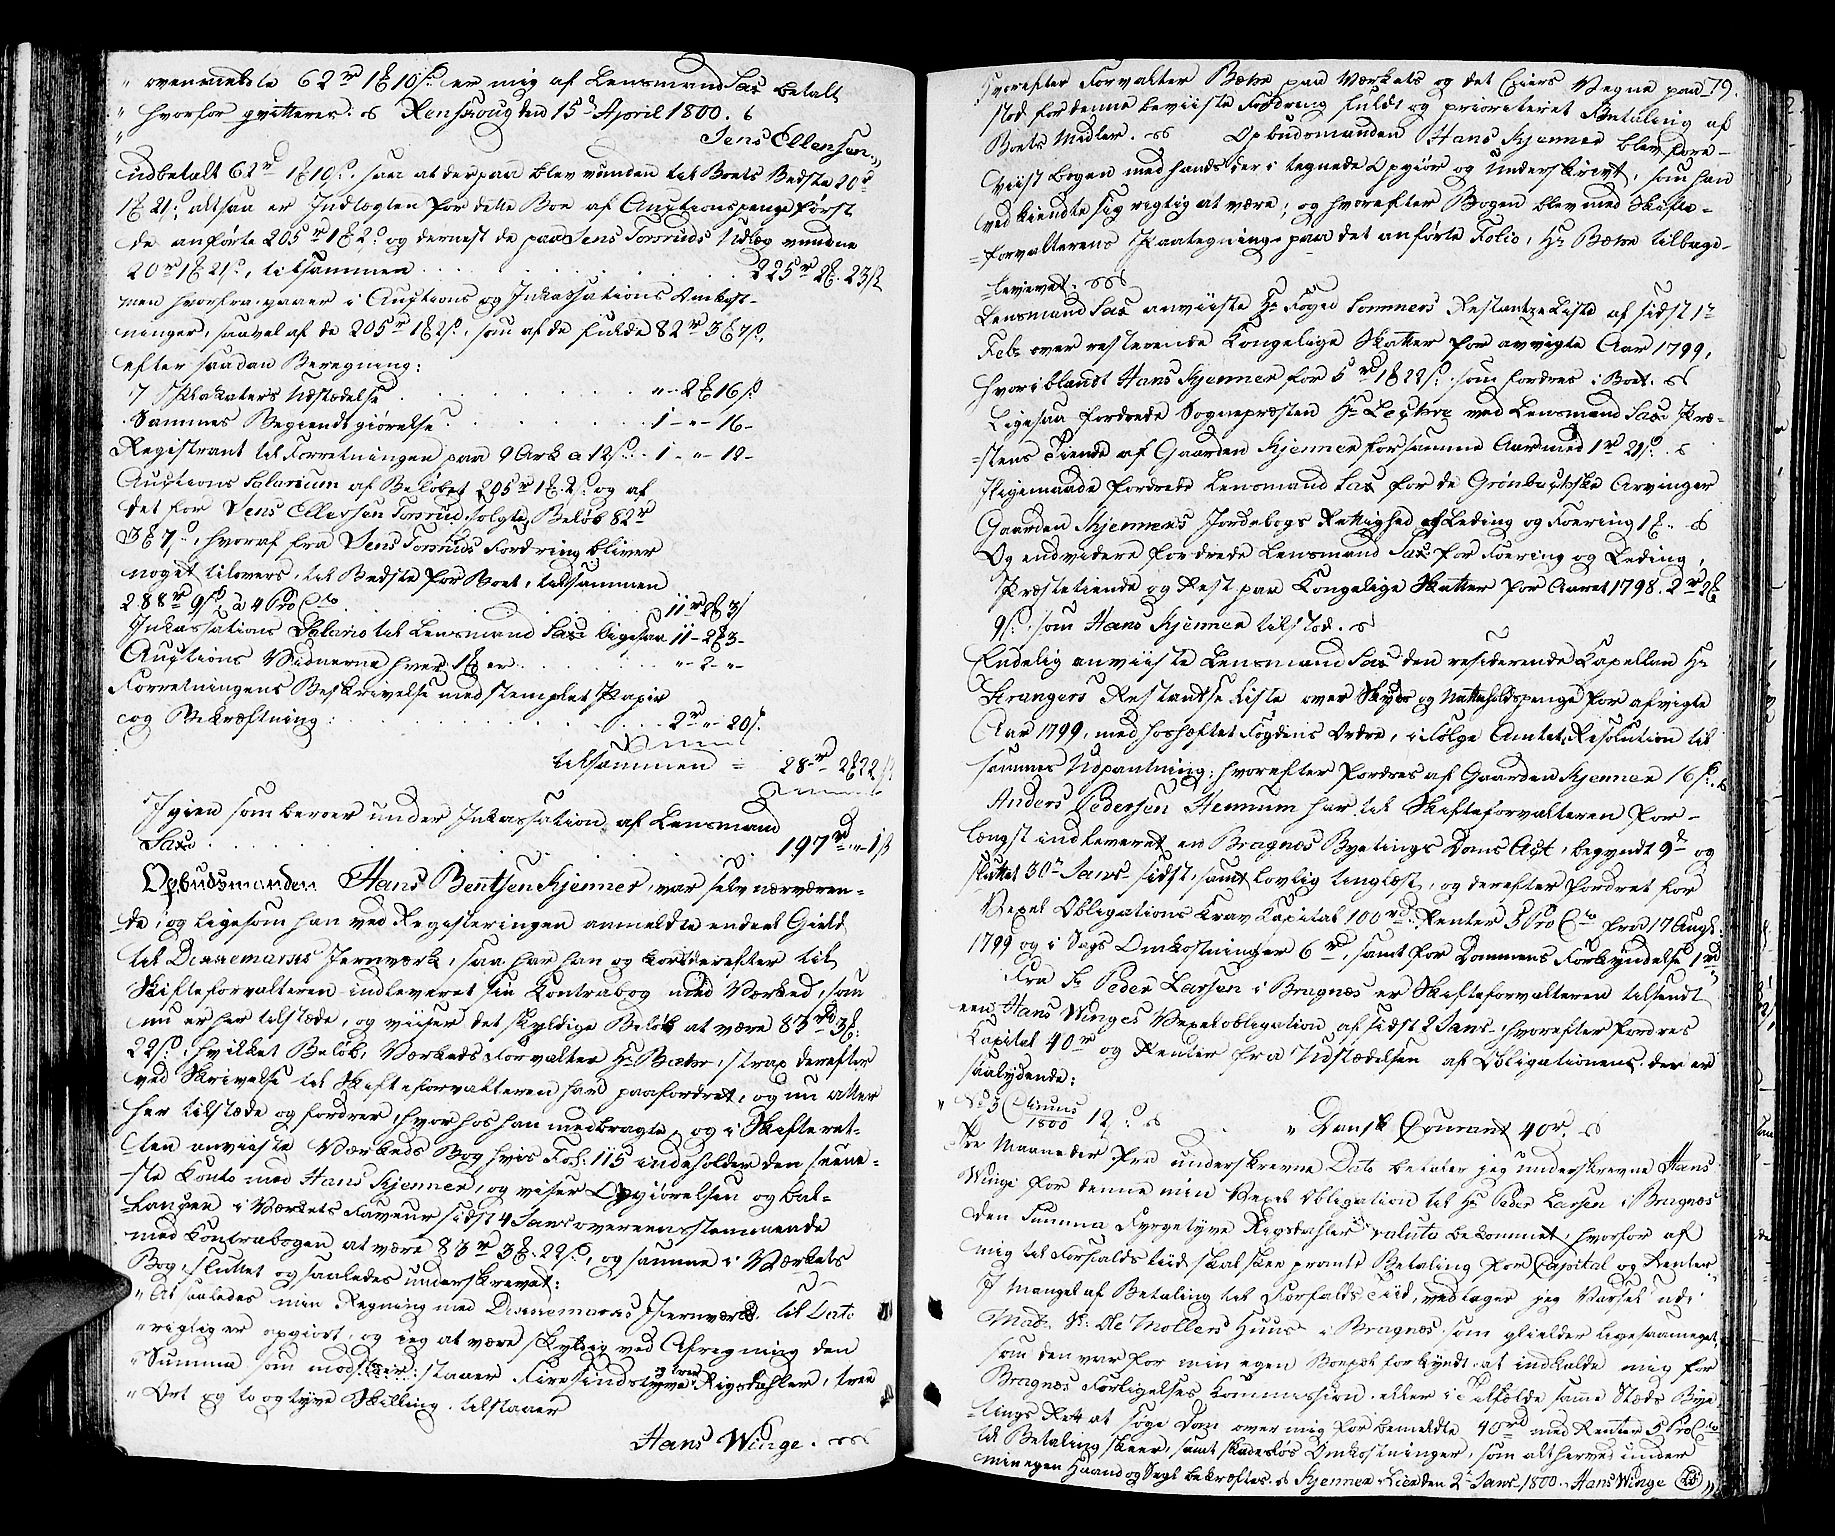 " ovenmelte 62 rd 1 ort 10 s. er mig af Lensmand Sax betalt
" hvorfor qvitteres. Renskoug den 15de April 1800.
" Jens Ellensen.
udbetalt 62 r 1 ort 10 s. saa at derpaa blev vunden til Boets Bedste 20 r
1 ort 21 s. altsaa er Indtægten for dette Boe af Auctionspenge først
de anførte 205 r 1 ort 2 s. og dernest de paa Jens Torsruds Udlæg vundne
20 r 1 ort 21 s., tilsammen . . . . 225 r 2 ort 23 s
men hvorfra gaaer i Auctions og Inkassations Omkost-
ninger, saavel af de 205 r 1 ort 2 s., som af de fulde 82 r 3 ort 7 s.,
efter saadan Beregning:
7 Plakaters Udstædelse . . . " - 2 ort 16 s
Sammes Begiendtgiørelse . . . 1 - " - 16 -
Registrant til Forretningen paa 9 Ark a 12 s. . 1 - " - 12 -
Auctions Salarium af Beløbet 205 r 1 ort 2 s. og af
det for Jens Ellersen Torsrud solgte Beløb 82 r
3 ort 7 s., hvoraf fra Jens Torsruds Fordring bliver
noget tilovers, til Bedste for Boet, tilsammen
288 r 9 s. a 4 Pro Cto . . . 11 r 2 ort 3 s
Inkassations Salario til Lensmand Sax ligesaa 11 - 2 ort 3 -
Auctions Vidnerne hver 1 ort er . . . " - 2 - " -
Forretningens Beskrivelse med stemplet Papir
og Bekræftning: . . . 2 r " - 20 s.
tilsammen = 28 r - 2 ort 22 s
Igien som beroer under Inkassation af Lensmand
Sax . . . 197 rd - " - 1 s
Opbudsmanden Hans Bentsen Kjenner, var selv nærværen-
de, og ligesom han ved Registeringen anmeldte endeel Gield
til Dinnemarus Jernværk, saa har han og kort derefter til
Skifteforvalteren indleveret sin Kontrabog med Værked, som
nu er her tilstæde, og viiser det skyldige Beløb at være 83 rd 3 ort
22 s., hvilket Beløb, Værkeds Forvalter Hr Bæhr, strax derefter
ved Skrivelse til Skifteforvalteren har paafordret, og nu atter
her tilstæde og fordrer, hvorhos han medbragte, og i Skifteret-
ten anviiste Værkeds Bog hvis Fol: 115 indeholder den seene-
ste Konto med Hans Kjenner, og viser Opgiørelsen og Bal-
langen i Værkets Faveur sidst 4 Janr overeensstemmende
med Kontrabogen at være 83 r 3 ort 22 s., og samme i Værkets
Bog, sluttet og saaledes underskrevet:
" At saaledes min Regning med Dinnemarus Jernværk til Dato
" rigtig er opgiort, og jeg at være skyldig ved Afregning den
" Summa som modstaaer, staaer Firesindstyve og tree Rigsdahler, tree
" Ort og to og tyve Skilling tilstaaer
Hans Winge.
79.
Hvorefter Forvalter Bæhr paa Værkets og det Eiers Vegne paa-
stod for denne beviiste Fordring fuldt og prioriteret Betaling af
Boets Midler. Opbudsmanden Hans Kjenner blev fore-
viist Bogen med hands der i tegnede Opgiør og Underskrivt, som han
vedkiendte sig rigtig at være; og hvorefter Bogen blev med Skifte-
forvalterens Paategning paa det anførte Folio, Hr Bæhr tilbage-
leveret.
Lensmand Sax anviiste Hr Foged Sommers Restantse Liste af sidst 1te
Febr. over resterende Kongelige Skatter for avvigte Aar 1799,
hvor iblandt Hans Kjenner for 5 r 1 ort 22 s. som fordres i Boet.
Ligesaa fordrede Sognepræsten Hr Leganger ved Lensmand Sax Præ-
stens Tiende af Gaarden Kjenner for samme Aar med 1 r 21 s.
Ligemaade fordrede Lensmand Sax for de Grønbechske Arvinger
Gaarden Kjenners Jordebogs Rettighed af Leding og Foering 1 ort.
Og endvidere fordrede Lensmand Sax for Foering og Leding,
Præstetiende og Rest paa Kongelige Skatter for Aaret 1798. 2 r 2 ort
9 s. som Hans Kjenner tilstod.
Endelig anviiste Lensmand Sax den residerende Kapellan Hr
Strangers Restantse Liste over Skyds og Natteholdspenge for afvigte
Aar 1799, med hoshæftet Fogdens Ordre, i følge Amtets Resolution til
sammes Udpantning, hvorefter fordres af Gaarden Kjenner 16 s.
Anders Pedersen Hennum har til Skifteforvalteren for-
længst indleveret en Bragnæs Byetings Doms Act, begyndt 9de og
sluttet 30te Janr sidst, samt lovlig tinglæst, og derefter fordret for
Vexel Obligations Krav Kapital 100 rd. Renter 5 Pro Cto fra 17 Augt.
1799 og i Sags Omkostninger 6 rd, samt for Dommens Forkyndelse 1 rd
Fra Sr Peder Larsen i Bragnæs er Skifteforvalteren tilsendt
een Hans Winges Vexelobligation af sidst 2 Janr, hvorefter fordres
Kapital 40 r og Renter fra Udstædelsen af Obligationens, der er
saalydende:
" No 3 1800 12 s. " Dansk Courant 40 r.
Tre Maaneder fra underskrevne Dato betaler jeg underskrevne Hans
Winge for denne min Vexel Obligation til Hr Peder Larsen i Bragnæs
den Summa Fyrgetyve Rigsdahler valuta bekommet, hvorfor af
mig til Forfalds tiid skal skee promte Betaling for Capital og Renter
I Mangel af Betaling til Forfalds Tiid, vedtager jeg Varsel udi
Mad: Sl: Ole Møllers Huus i Bragnæs som gielder ligesaameget
som den var for min egen Boepæl forkyndt, at indkalde mig for
Bragnæs Forligelses Kommission eller i Tilfælde samme Stæds Bye-
tings Ret at søge Dom over mig for bemeldte 40 rd med Renter 5 Pro Cto
til Betaling skeer, samt skadesløs Omkostninger, som alt herved under
min egen Haand og Segl bekræftes. Kjenner i Lier den 2de Janr 1800. Hans Winge